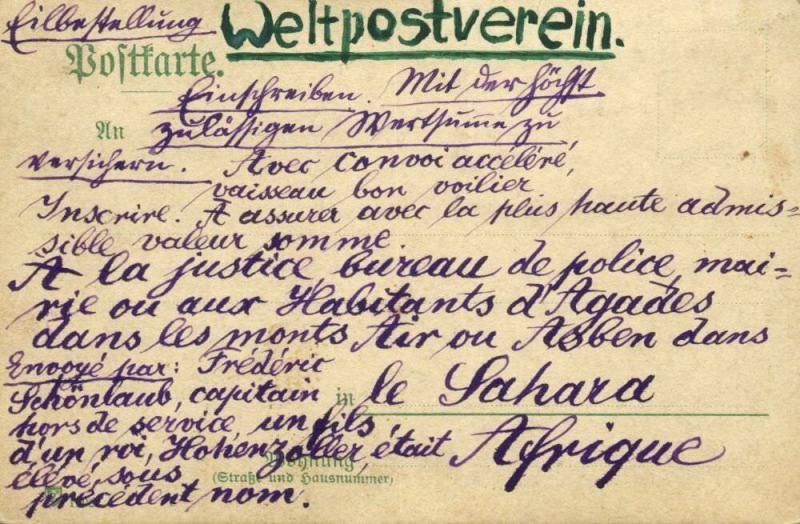 Eilbestellung Weltpostverein.
Postkarte.
Einschreiben. Mit der höchst
An zulässigen Wertsumme zu
versichern. Avec convoi accéléré,
vaisseau bon voilier
Inscrire. A assurer avec la plus haute admis=
sible valeur somme.
A la justice, bureau de police, mai=
rie ou aux Habitants d'Agades
dans les monts Aïr ou Asben dans
Envoyé par: Frédéric
Schönlaub, capitain in le Sahara
hors de service un fils
d'un roi, Hohenzoller, était Afrique
Wohnung
élévé, sous (Straße und Hausnummer)
précédent nom.